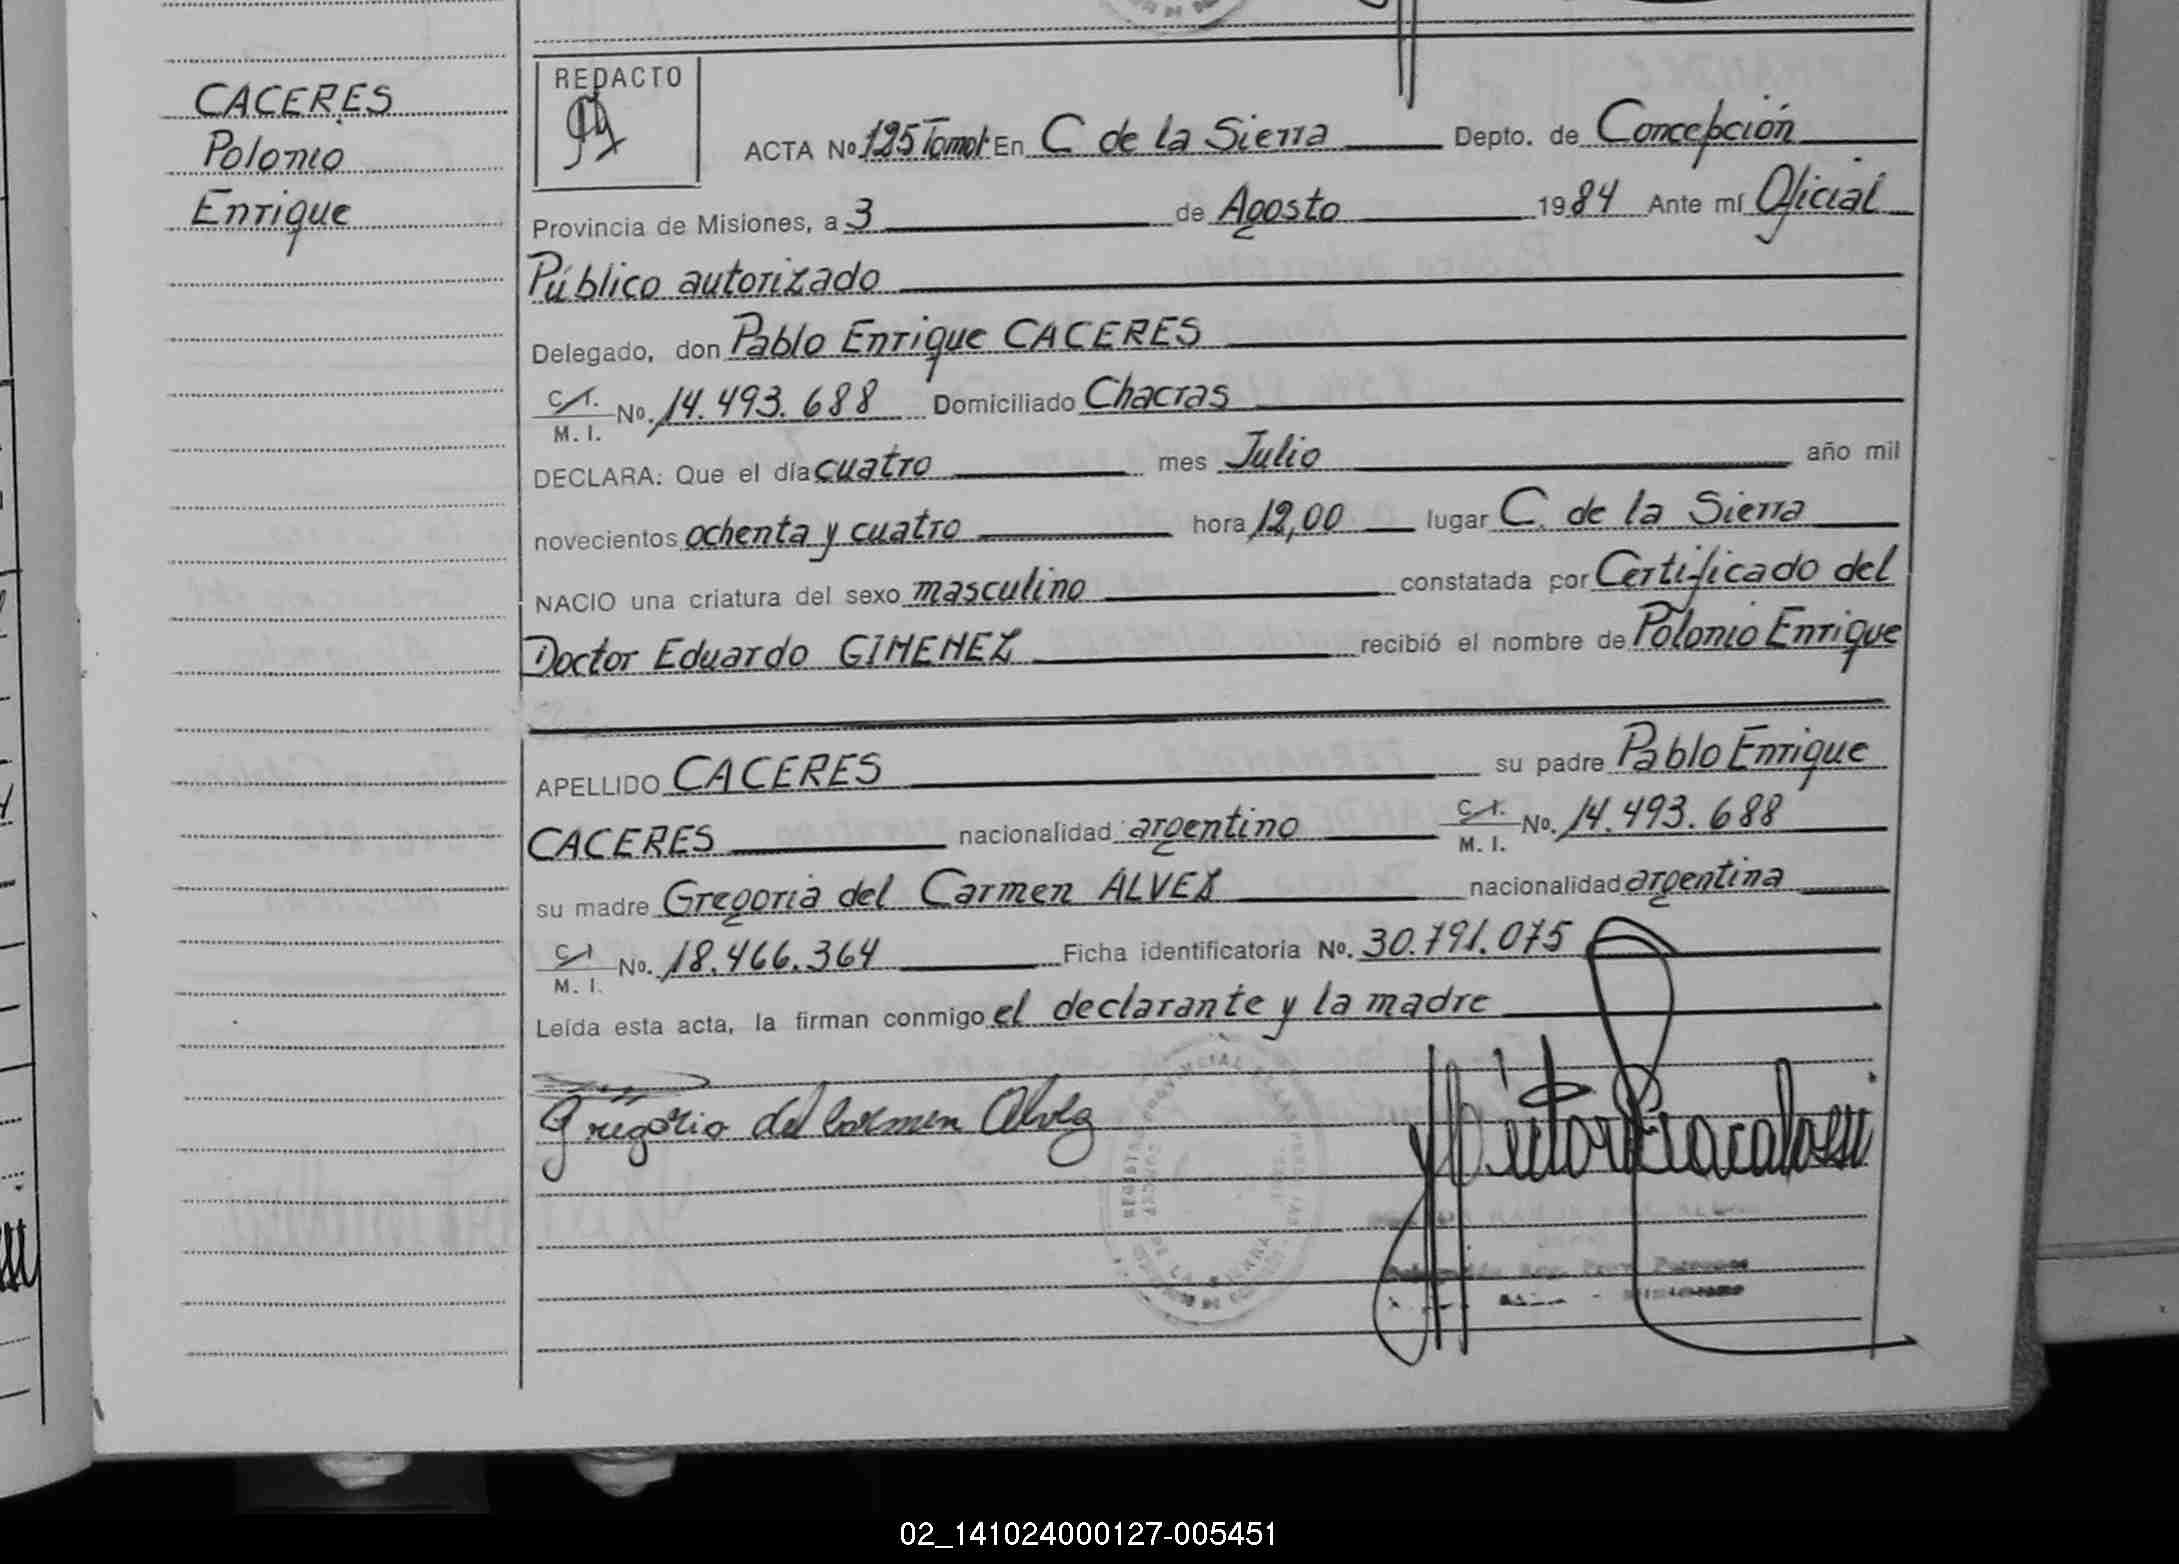 CACERES
Polonio
Enrique
REDACTO
ACTA No 125 Tomo I En C de la Sierra Depto. de Concepción
Provincia de Misiones, a 3 de Agosto 1984 Ante mí Oficial
Público autorizado
Delegado, don Pablo Enrique CACERES
C.I.
M. I. No. 14.493.688 Domiciliado Chacras
DECLARA: Que el día cuatro mes Julio año mil
novecientos ochenta y cuatro hora 12,00 lugar C. de la Sierra
NACIO una criatura del sexo masculino constatada por Certificado del
Doctor Eduardo GIMENEZ recibió el nombre de Polonio Enrique
APELLIDO CACERES su padre Pablo Enrique
CACERES nacionalidad argentino C.I. M. I. No. 14.493.688
su madre Gregoria del Carmen ALVEZ nacionalidad argentina
C.I.
M. I. No. 18.466.364 Ficha identificatoria No. 30.791.075
Leída esta acta, la firman conmigo el declarante y la madre
Gregoria del Carmen Alvez
02_141024000127-005451